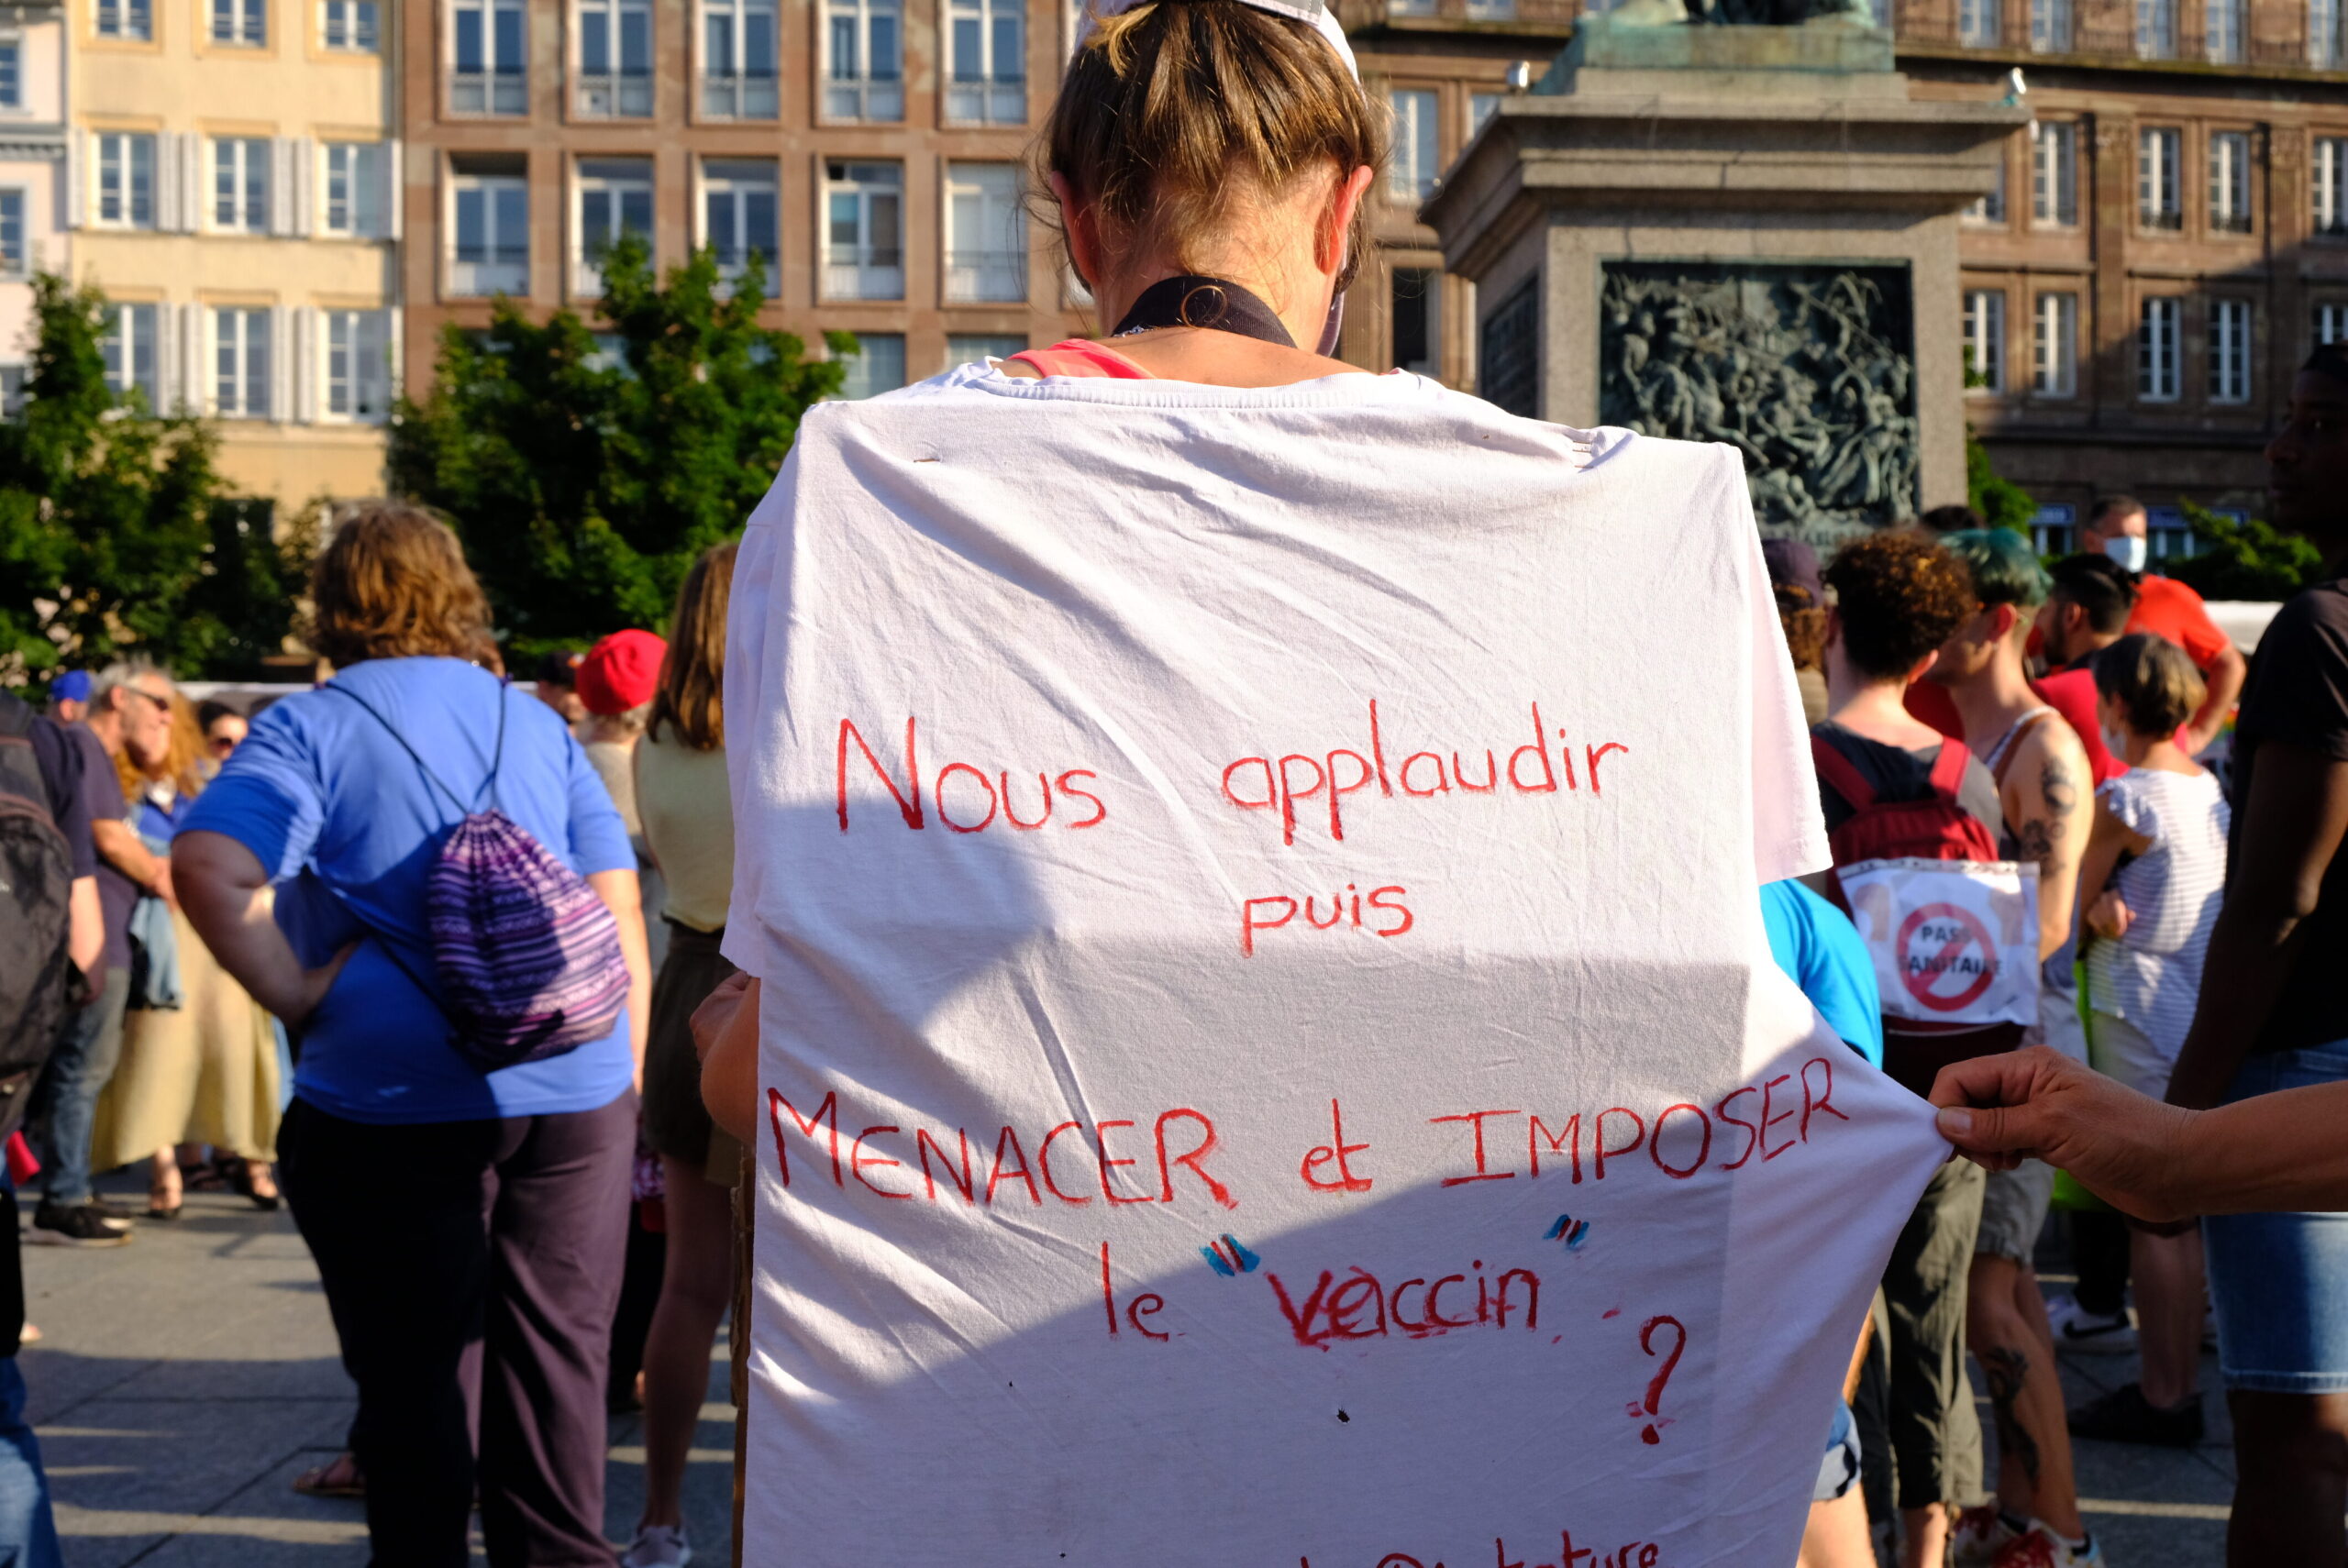 Nous applaudir
puis
MENACER et IMPOSER
le "vaccin"
?
PASS
SANITAIRE